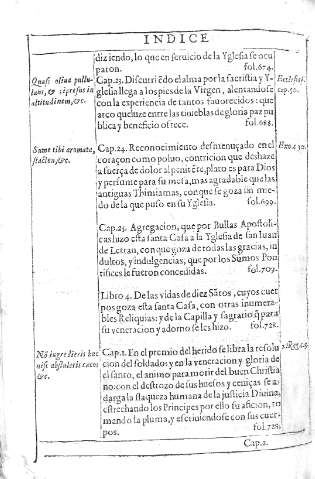 INDICE
diziendo, lo que en seruicio de la Yglesia se ocu
paron. fol.674.
Quasi oliua pullu-
lans, & cipresus in
altitudinem, &c.
Cap.23. Discurriēdo el alma por la sacristia y Y-
glesia llega a los pies de la Virgen, alentandose
con la experiencia de tantos fauorecidos: que
arco que luze entre las tinieblas de gloria paz pu
blica y beneficio ofrece. fol.688.
Ecclesiast.
cap.50.
Sume tibi aromata,
stacten, &c.
Cap.24. Reconocimiento desmenuçado en el
coraçon como poluo, contricion que deshaze
a fuerça de dolor al penitēte, plato es para Dios
y perfume para su mesa, mas agradable que las
antiguas Thimiamas, con que se goza sin me-
do de la que puso en su Yglesia. fol.699.
Exo.c.30.
Cap.25. Agregacion, que por Bullas Apostoli-
cas hizo esta santa Casa a la Yglesia de san Iuan
de Letran, con que goza de todas las gracias, in
dultos, y indulgencias, que por los Sumos Pon
tifices le fueron concedidas. fol.703.
Libro 4. De las vidas de diez Sātos, cuyos cuer
pos goza esta santa Casa, con otras inumera-
bles Reliquias: y de la Capilla y sagrario q̄ para
su veneracion y adorno se les hizo. fol.728.
Nō ingredieris huc
nisi abstuleris cæcos
&c.
Cap.1. En el premio del herido se libra la resolu
cion del soldados y en la veneracion y gloria de
el santo, el animo para morir del buen Christia
no: con el destrozo de sus huesos y ceniças se a-
darga la flaqueza humana de la justicia Diuina,
estrechando los Principes por ello su aficion, to
mando la pluma, y escriuiendose con sus cuer-
pos. fol.728.
2.Re.c.5.
Cap.2.